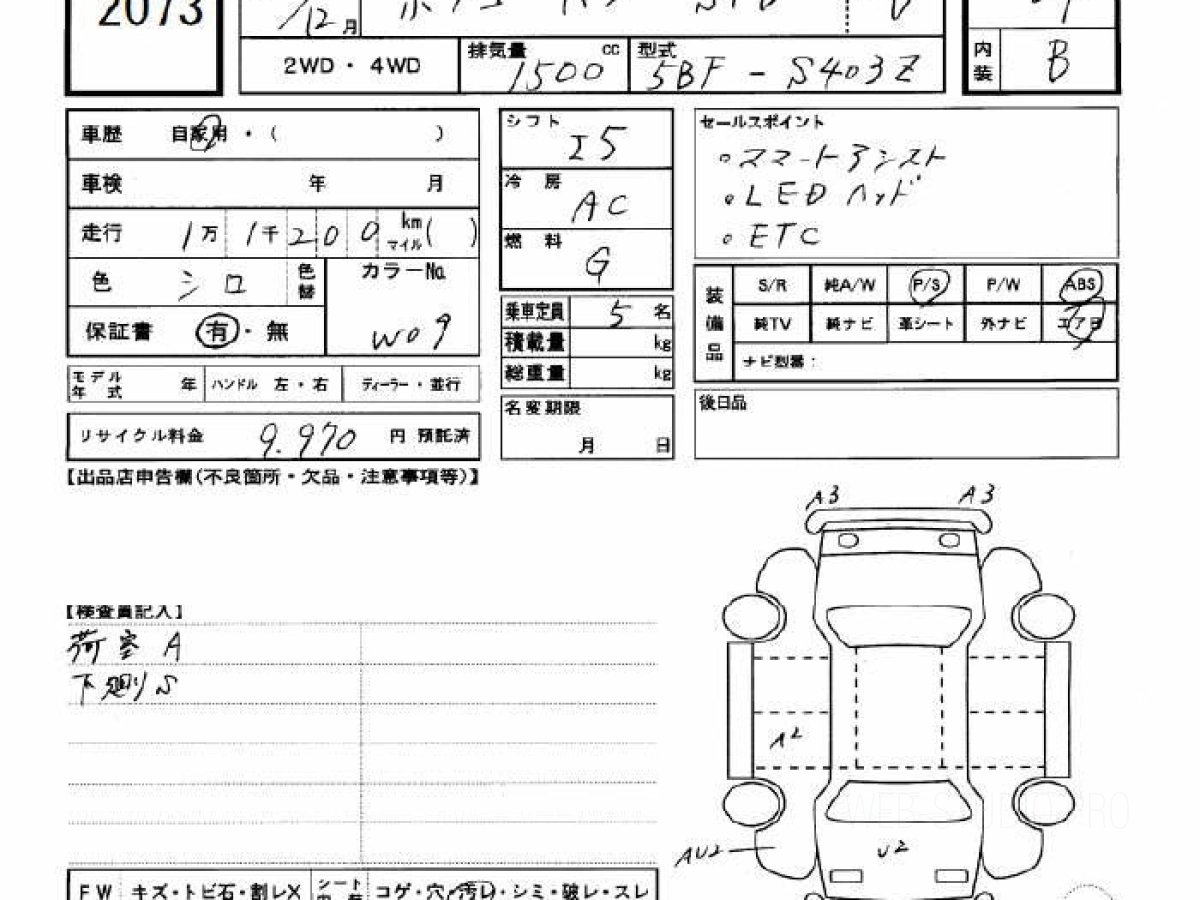 2073
12月
2WD・4WD
排気量 1500 cc
型式 5BF-S403Z
内装 B
車歴 自家用・( )
車検 年 月
走行 1万 1千 200 km マイル ( )
色 シロ 色替
カラーNo. W09
保証書 有・無
モデル年式 年 ハンドル 左・右 ディーラー・並行
リサイクル料金 9.970 円 預託済
シフト I5
冷房 AC
燃料 G
乗車定員 5 名
積載量 kg
総重量 kg
名変期限 月 日
セールスポイント
。スマートアシスト
。LEDヘッド
。ETC
装備品
S/R 純A/W P/S P/W ABS
純TV 純ナビ 革シート 外ナビ エアB
ナビ型番:
後日品
【出品店申告欄(不良箇所・欠品・注意事項等)】
【検査員記入】
荷室 A
下廻り S
A3 A3
A2
AU2
U2
WEB STUDIO PRO
FW キズ・トビ石・割レX シート コゲ・穴・汚レ・シミ・破レ・スレ